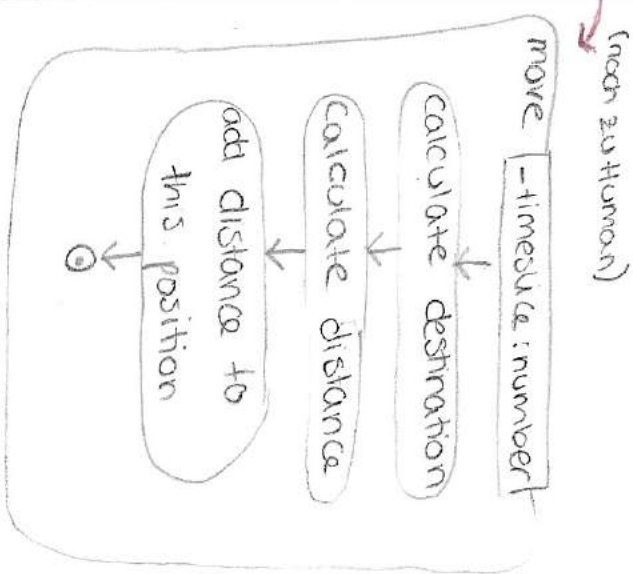 (noch zu Human)
move
_timeslice : number
calculate destination
calculate distance
add distance to
this position